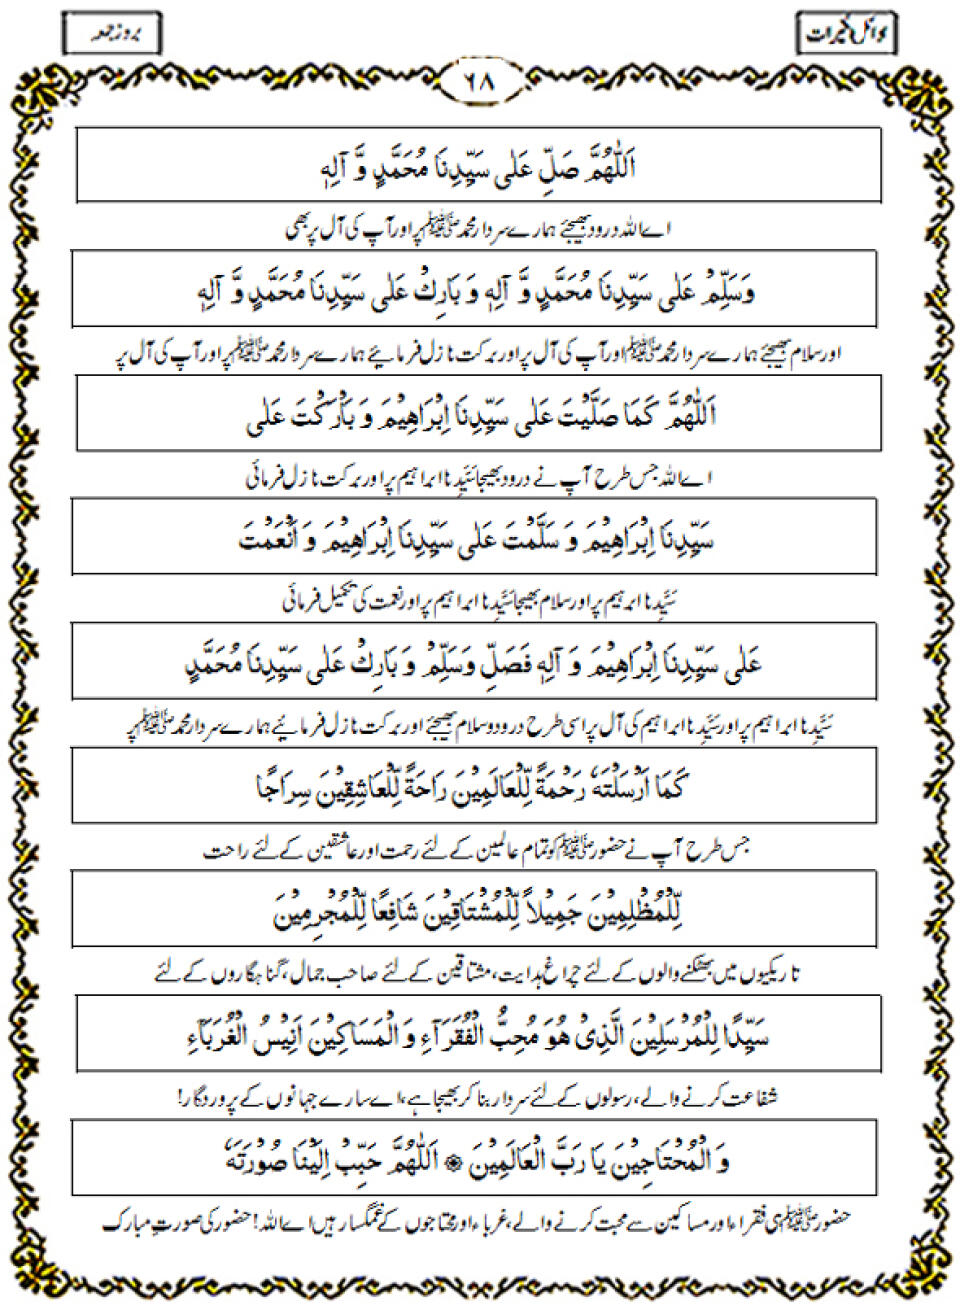 بروز جمعہ
۶۸
اَللّٰهُمَّ صَلِّ عَلٰى سَيِّدِنَا مُحَمَّدٍ وَّ آلِهٖ
اے اللہ درود بھیجئے ہمارے سردار محمد ﷺ پر اور آپ کی آل پر بھی
وَسَلِّمْ عَلٰى سَيِّدِنَا مُحَمَّدٍ وَّ آلِهٖ وَ بَارِكْ عَلٰى سَيِّدِنَا مُحَمَّدٍ وَّ آلِهٖ
اور سلام بھیجئے ہمارے سردار محمد ﷺ اور آپ کی آل پر اور برکت نازل فرمائیے ہمارے سردار محمد ﷺ پر اور آپ کی آل پر
اَللّٰهُمَّ كَمَا صَلَّيْتَ عَلٰى سَيِّدِنَا اِبْرَاهِيْمَ وَ بَارَكْتَ عَلٰى
اے اللہ جس طرح آپ نے درود بھیجا سَیِّدِنا ابراہیم پر اور برکت نازل فرمائی
سَيِّدِنَا اِبْرَاهِيْمَ وَ سَلَّمْتَ عَلٰى سَيِّدِنَا اِبْرَاهِيْمَ وَ اَنْعَمْتَ
سَیِّدِنا ابرہیم پر اور سلام بھیجا سَیِّدِنا ابراہیم پر اور نعمت کی تکمیل فرمائی
عَلٰى سَيِّدِنَا اِبْرَاهِيْمَ وَ آلِهٖ فَصَلِّ وَسَلِّمْ وَ بَارِكْ عَلٰى سَيِّدِنَا مُحَمَّدٍ
سَیِّدِنا ابراہیم پر اور سَیِّدِنا ابراہیم کی آل پر اسی طرح درود و سلام بھیجئے اور برکت نازل فرمائیے ہمارے سردار محمد ﷺ پر
كَمَا اَرْسَلْتَهٗ رَحْمَةً لِّلْعَالَمِيْنَ رَاحَةً لِّلْعَاشِقِيْنَ سِرَاجًا
جس طرح آپ نے حضور ﷺ کو تمام عالمین کے لئے رحمت اور عاشقین کے لئے راحت
لِّلْمُظْلِمِيْنَ جَمِيْلاً لِّلْمُشْتَاقِيْنَ شَافِعًا لِّلْمُجْرِمِيْنَ
تاریکیوں میں بھٹکنے والوں کے لئے چراغ ہدایت، مشتاقین کے لئے صاحب جمال، گناہگاروں کے لئے
سَيِّدًا لِلْمُرْسَلِيْنَ الَّذِىْ هُوَ مُحِبُّ الْفُقَرَآءِ وَ الْمَسَاكِيْنَ اَنِيْسُ الْغُرَبَآءِ
شفاعت کرنے والے، رسولوں کے لئے سردار بنا کر بھیجا ہے، اے سارے جہانوں کے پروردگار!
وَ الْمُحْتَاجِيْنَ يَا رَبَّ الْعَالَمِيْنَ ۞ اَللّٰهُمَّ حَبِّبْ اِلَيْنَا صُوْرَتَهٗ
حضور ﷺ ہی فقراء اور مساکین سے محبت کرنے والے، غرباء اور محتاجوں کے غمگسار ہیں اے اللہ! حضور کی صورت مبارک